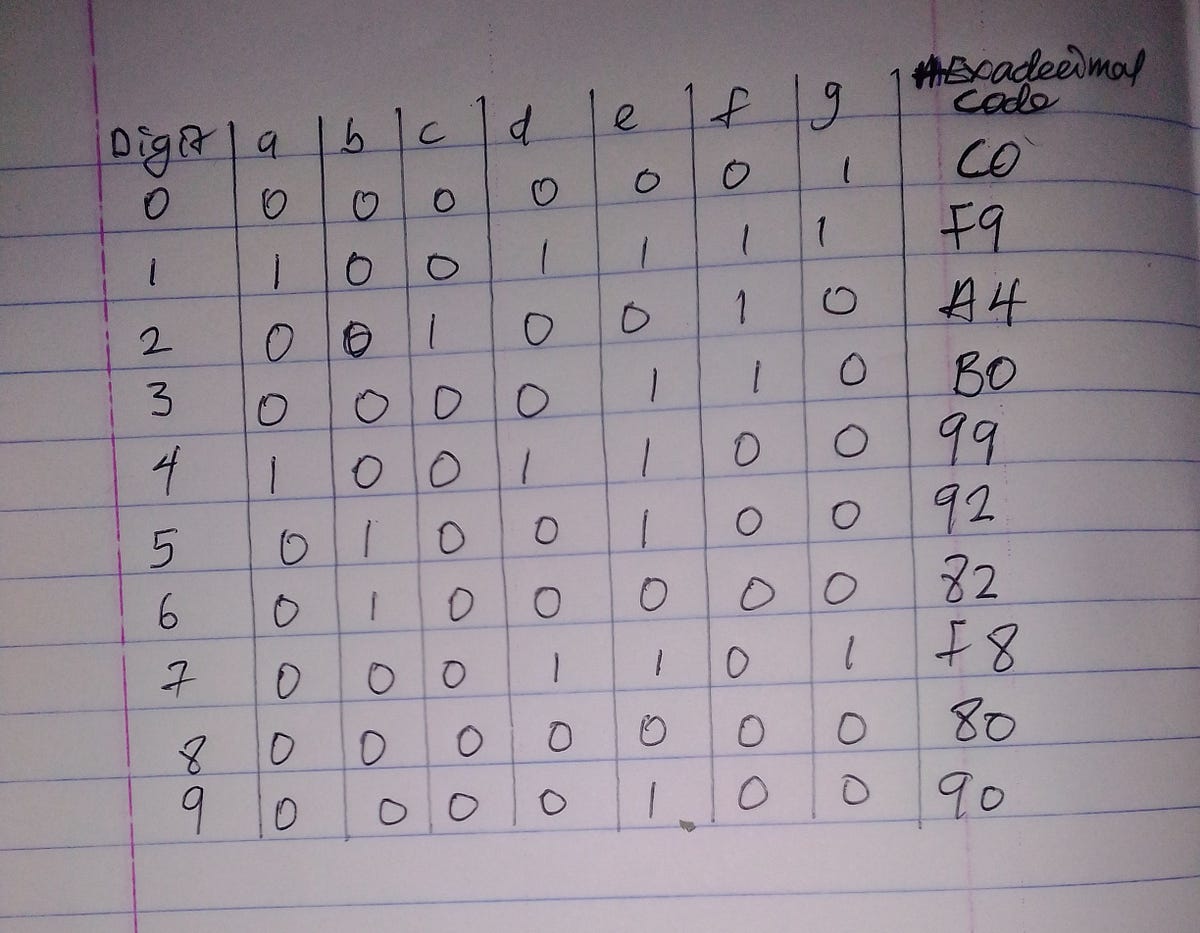 Digit a b c d e f g Hexadecimal
code
0 0 0 0 0 0 0 1 C0
1 1 0 0 1 1 1 1 F9
2 0 0 1 0 0 1 0 A4
3 0 0 0 0 1 1 0 B0
4 1 0 0 1 1 0 0 99
5 0 1 0 0 1 0 0 92
6 0 1 0 0 0 0 0 82
7 0 0 0 1 1 0 1 F8
8 0 0 0 0 0 0 0 80
9 0 0 0 0 1 0 0 90